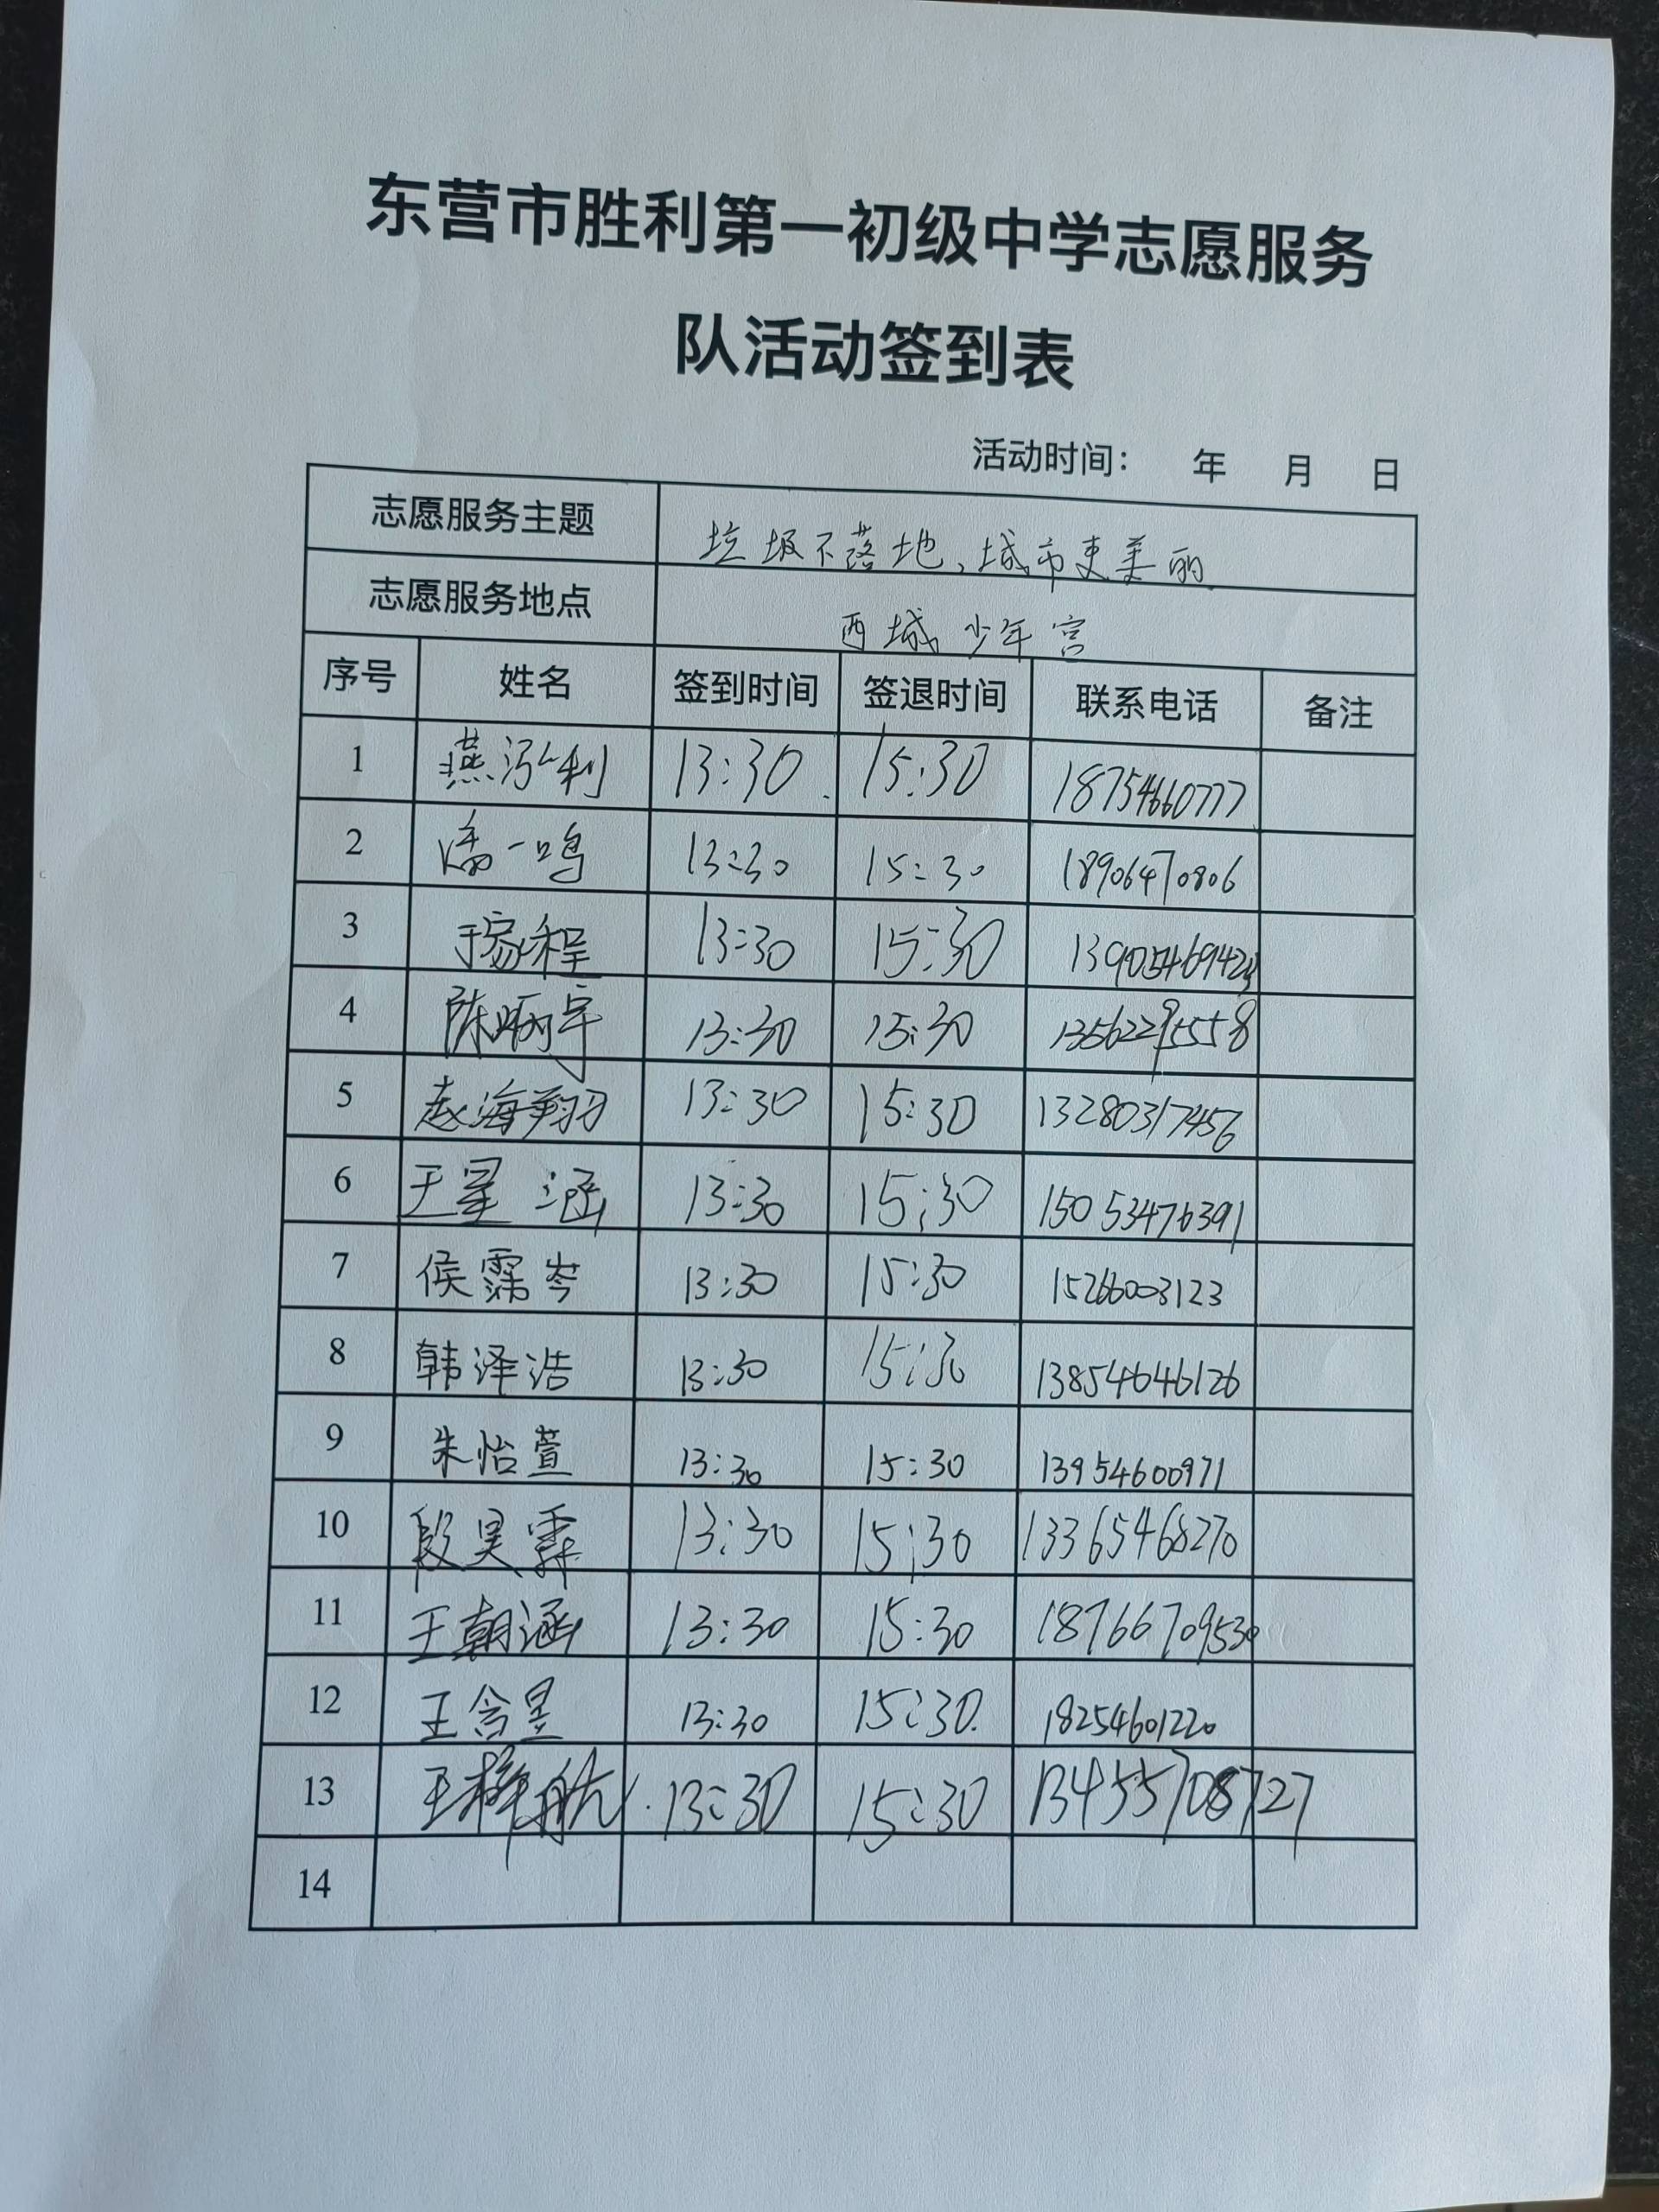 东营市胜利第一初级中学志愿服务
队活动签到表
活动时间： 年 月 日
志愿服务主题 垃圾不落地、城市更美丽
志愿服务地点 西城少年宫
序号 姓名 签到时间 签退时间 联系电话 备注
1 燕泓利 13:30 15:30 18754660777
2 潘一鸣 13:30 15:30 18906470806
3 于家程 13:30 15:30
4 陈炳宇 13:30 15:30 13562295558
5 赵海翔 13:30 15:30 13280317456
6 王星涵 13:30 15:30 15053476391
7 侯霈岑 13:30 15:30 15266003123
8 韩泽浩 13:30 15:30 13854646126
9 朱怡萱 13:30 15:30 13954600971
10 段昊霖 13:30 15:30 13365468270
11 王朝涵 13:30 15:30 18766709530
12 王含昱 13:30 15:30. 18254601220
13 王梓航 13:30 15:30 13455708727
14